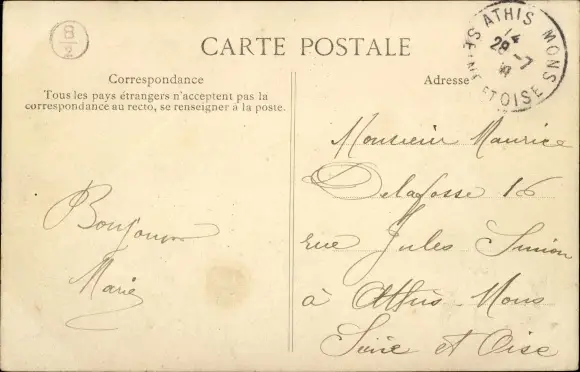 CARTE POSTALE
Correspondance
Tous les pays étrangers n'acceptent pas la
correspondance au recto, se renseigner à la poste.
Adresse
ATHIS MONS
SEINE ET OISE
29 -7
Bonjour
Marie
Monsieur Maurice
Delafosse 16
rue Jules Simon
à Athis-Mons
Seine et Oise